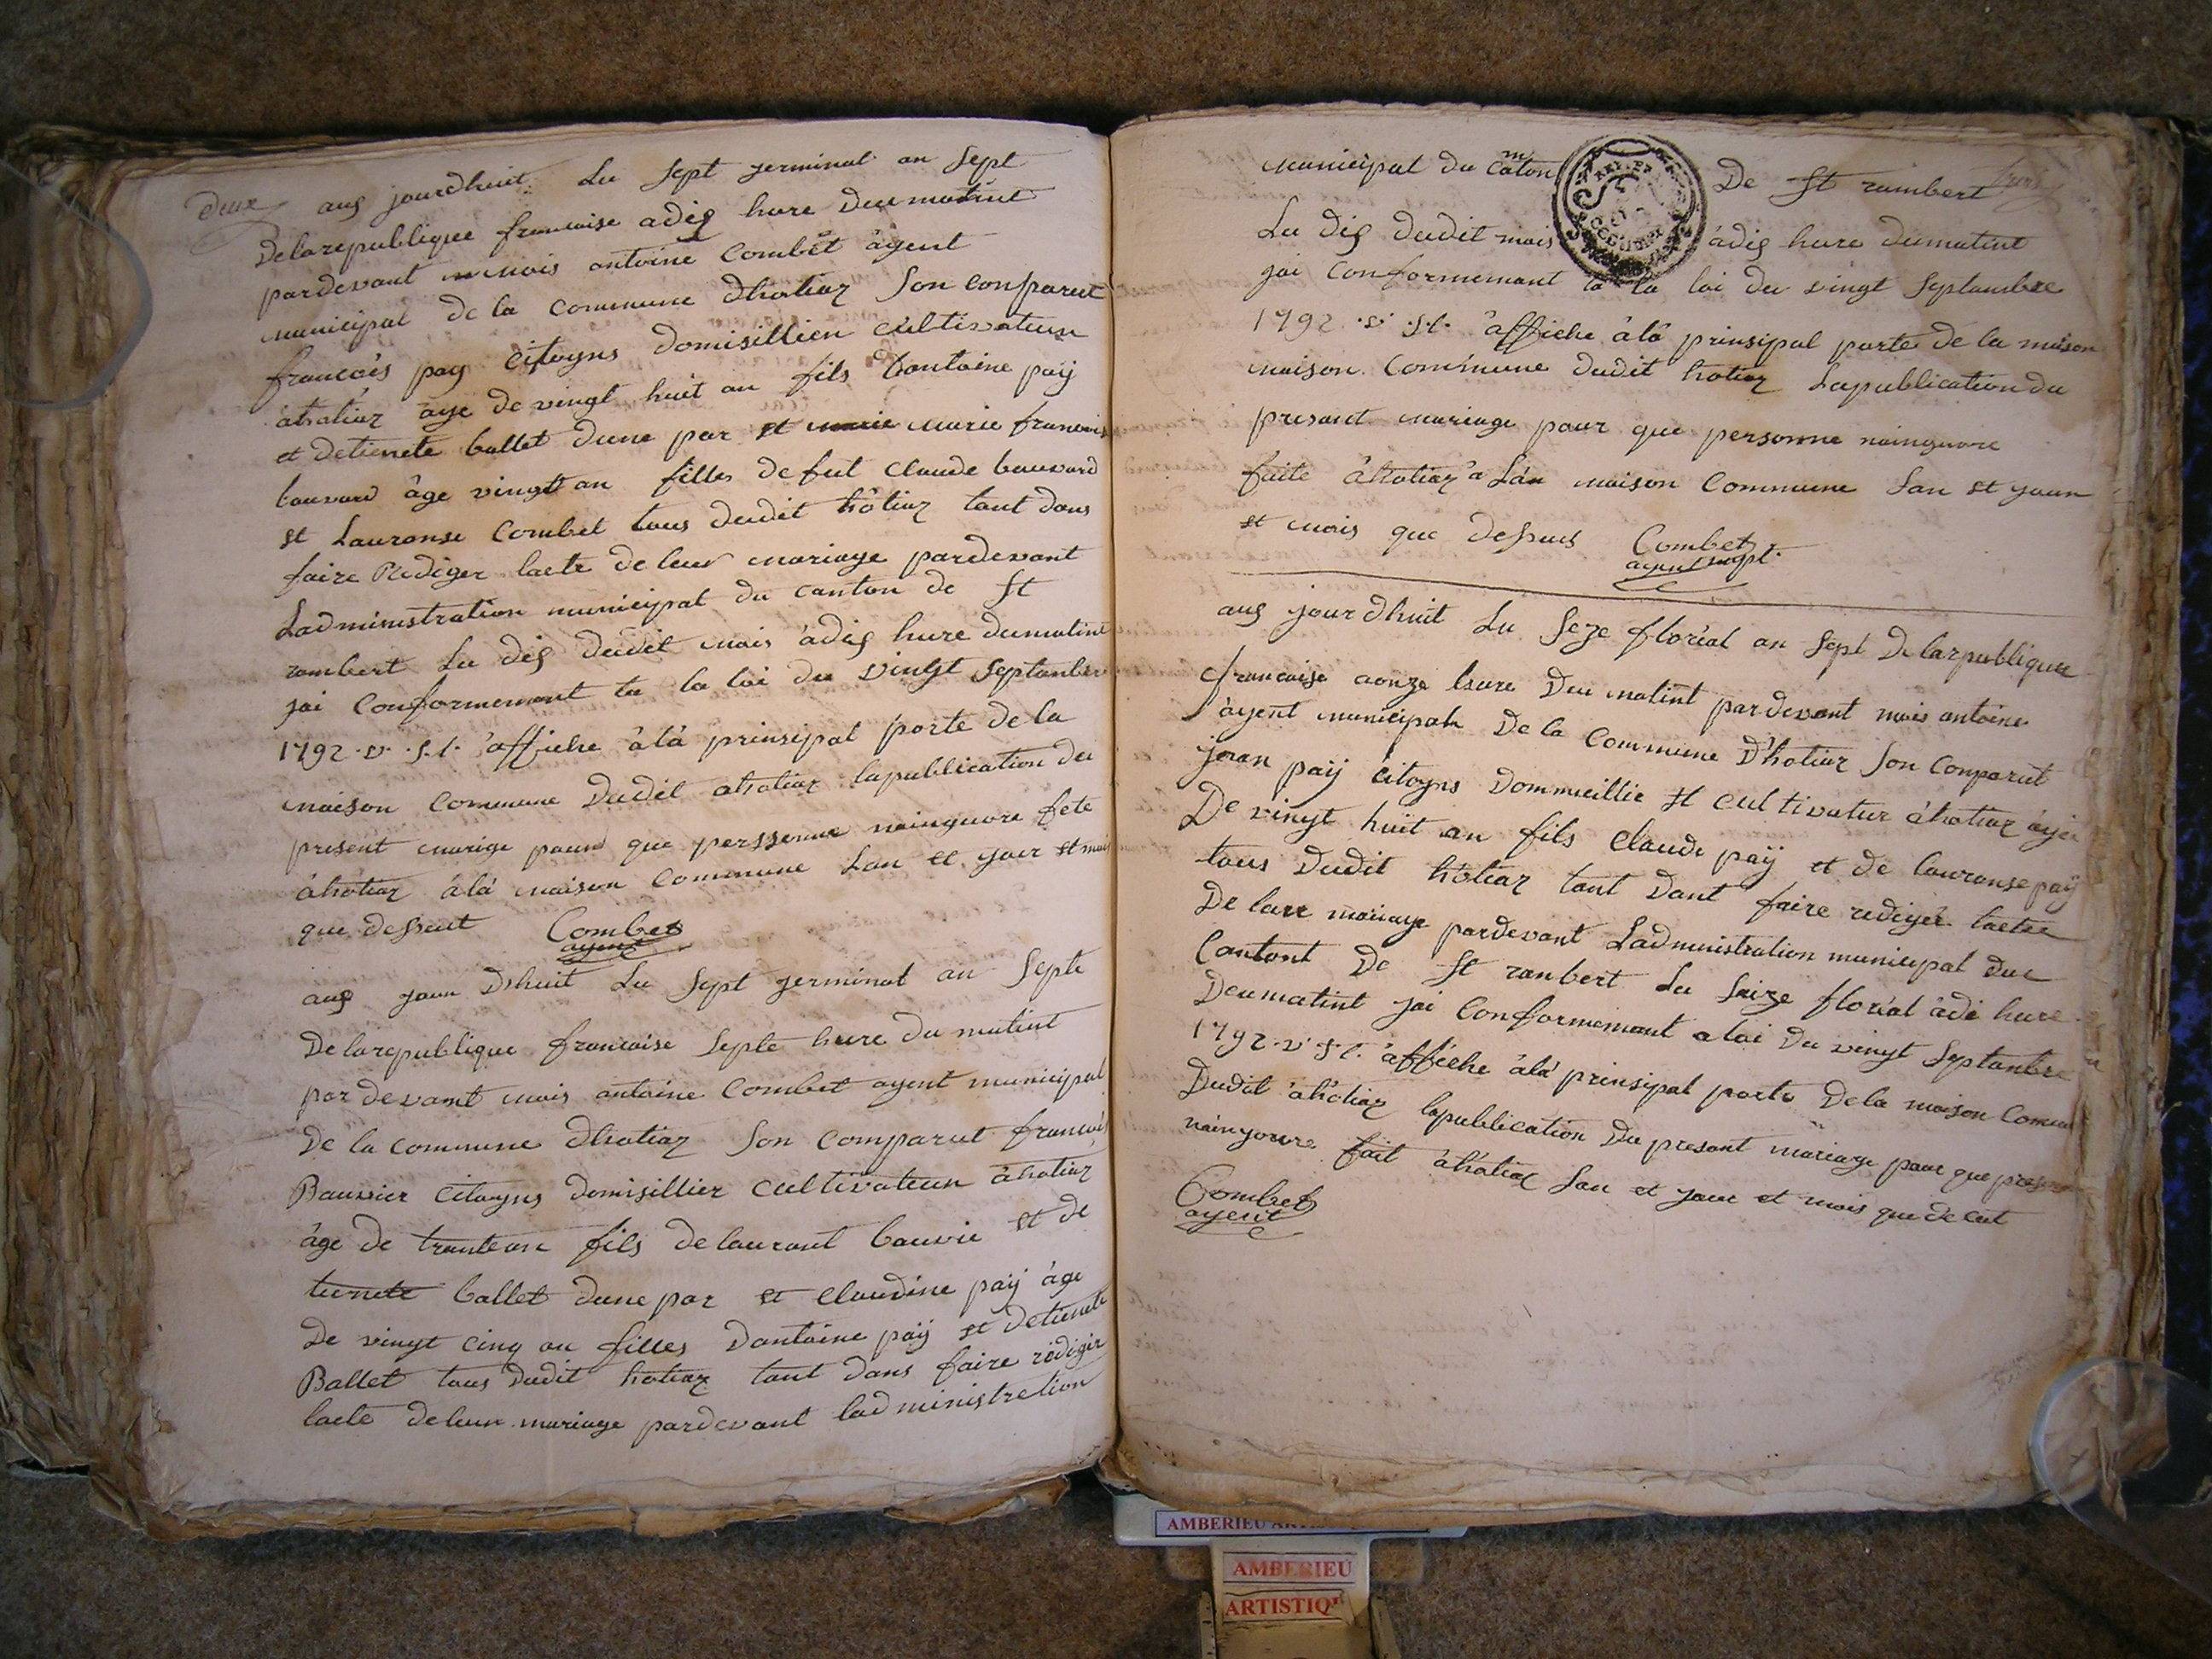 deux aug jourdhuit Le sept germinal an sept
Delarepublique francaise adis hure Deumatint
pardevant mois antoine Combet agent
municipal de la commune dhotiaz son conparut
francois pay citoyns domisillien cultivateur
ahotiaz age de vingt huit an fils dantoine paÿ
et detienete ballet dune par et marie marie francois
bouvard âge vingt an filles de fut Claude bouvard
et Lauranse Combet tous dudit hôtiaz tant dans
faire Rediger lacte de leur mariage pardevant
Ladministration municipal du canton de St
rambert Le dis dudit mois àdis hure dumatint
jai Conformemant ta la loi du vingt septanbre
1792 .v. s.t. àffiche àlà prinsipal porte de la
maison Commune Dudit ahotiaz lapublication du
present marige pour que perssonne nainguore fete
àhotiaz àlà maison Commune Lan et jour et mois
que dessut Combet
agent
aug jour Dhuit Le sept germinal an septe
Delarepublique francaise septe hure du matint
pardevant mois antoine Combet agent municipal
De la commune dhotiaz son comparut francois
Bauvier Citoyns domisillier cultivateur àhotiaz
âge de trante an fils de laurant bauvie et de
tienete ballet dune par et Claudine paÿ àge
De vingt cinq an filles Dantoine paÿ et detienete
Ballet tous Dudit hotiaz tant dans faire rediger
lacte deleur mariage pardevant ladministretion
municipal du Caton De St rambert
Le dis dudit mois àdis hure dumatint
jai Conformemant ta la loi du vingt septambre
1792 .v. s.t. àffiche àlà prinsipal porte de la maison
maison Commune dudit hotiaz Lapublication du
presant mariage pour que personne nainguore
faite àhotiaz a Lan maison Commune Lan et jour
et mois que dessus Combet
agent mupt.
aug jour dhuit Le seze floréal an sept De larpublique
francaise aonze hure Deu matint pardevant mois antoine
àgent municipale De la Commune D'hotiaz son Conparut
jean paÿ citoyns Dommicillie et cultivatur àhotiaz àge
De vingt huit an fils Claude paÿ et de lauranse paÿ
tous Dudit hôtiaz tant Dant faire rediger lactee
De laur mariage pardevant Ladministration municipal due
Cantont De St ranbert Le saize floréal àdi hure
Deumatint jai Conformemant a loi du vingt septanbre
1792 .v. s.t. àffiche àlà prinsipal porte Dela maison Comun
Dudit àhotiaz lapublication Du presant mariage pour que
naingoure fait àhotiaz Lan et jour et mois que de cut
Combet
agent
AMBERIEU
AMBERIEU
ARTISTIQ